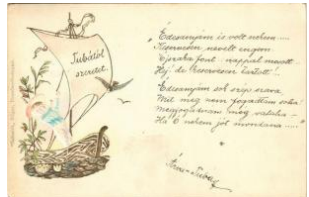 Tubától
szeretet.
"Édesanyám is volt nékem....
Keservesen nevelt engem
Éjszaka font - nappal mosott -
Hej! de keservesen tartott!
Édesanyám sok szép szava
Kit még nem fogadtam soha
Megfogadnám még valaha -
Ha ő nekem jót mondana...."